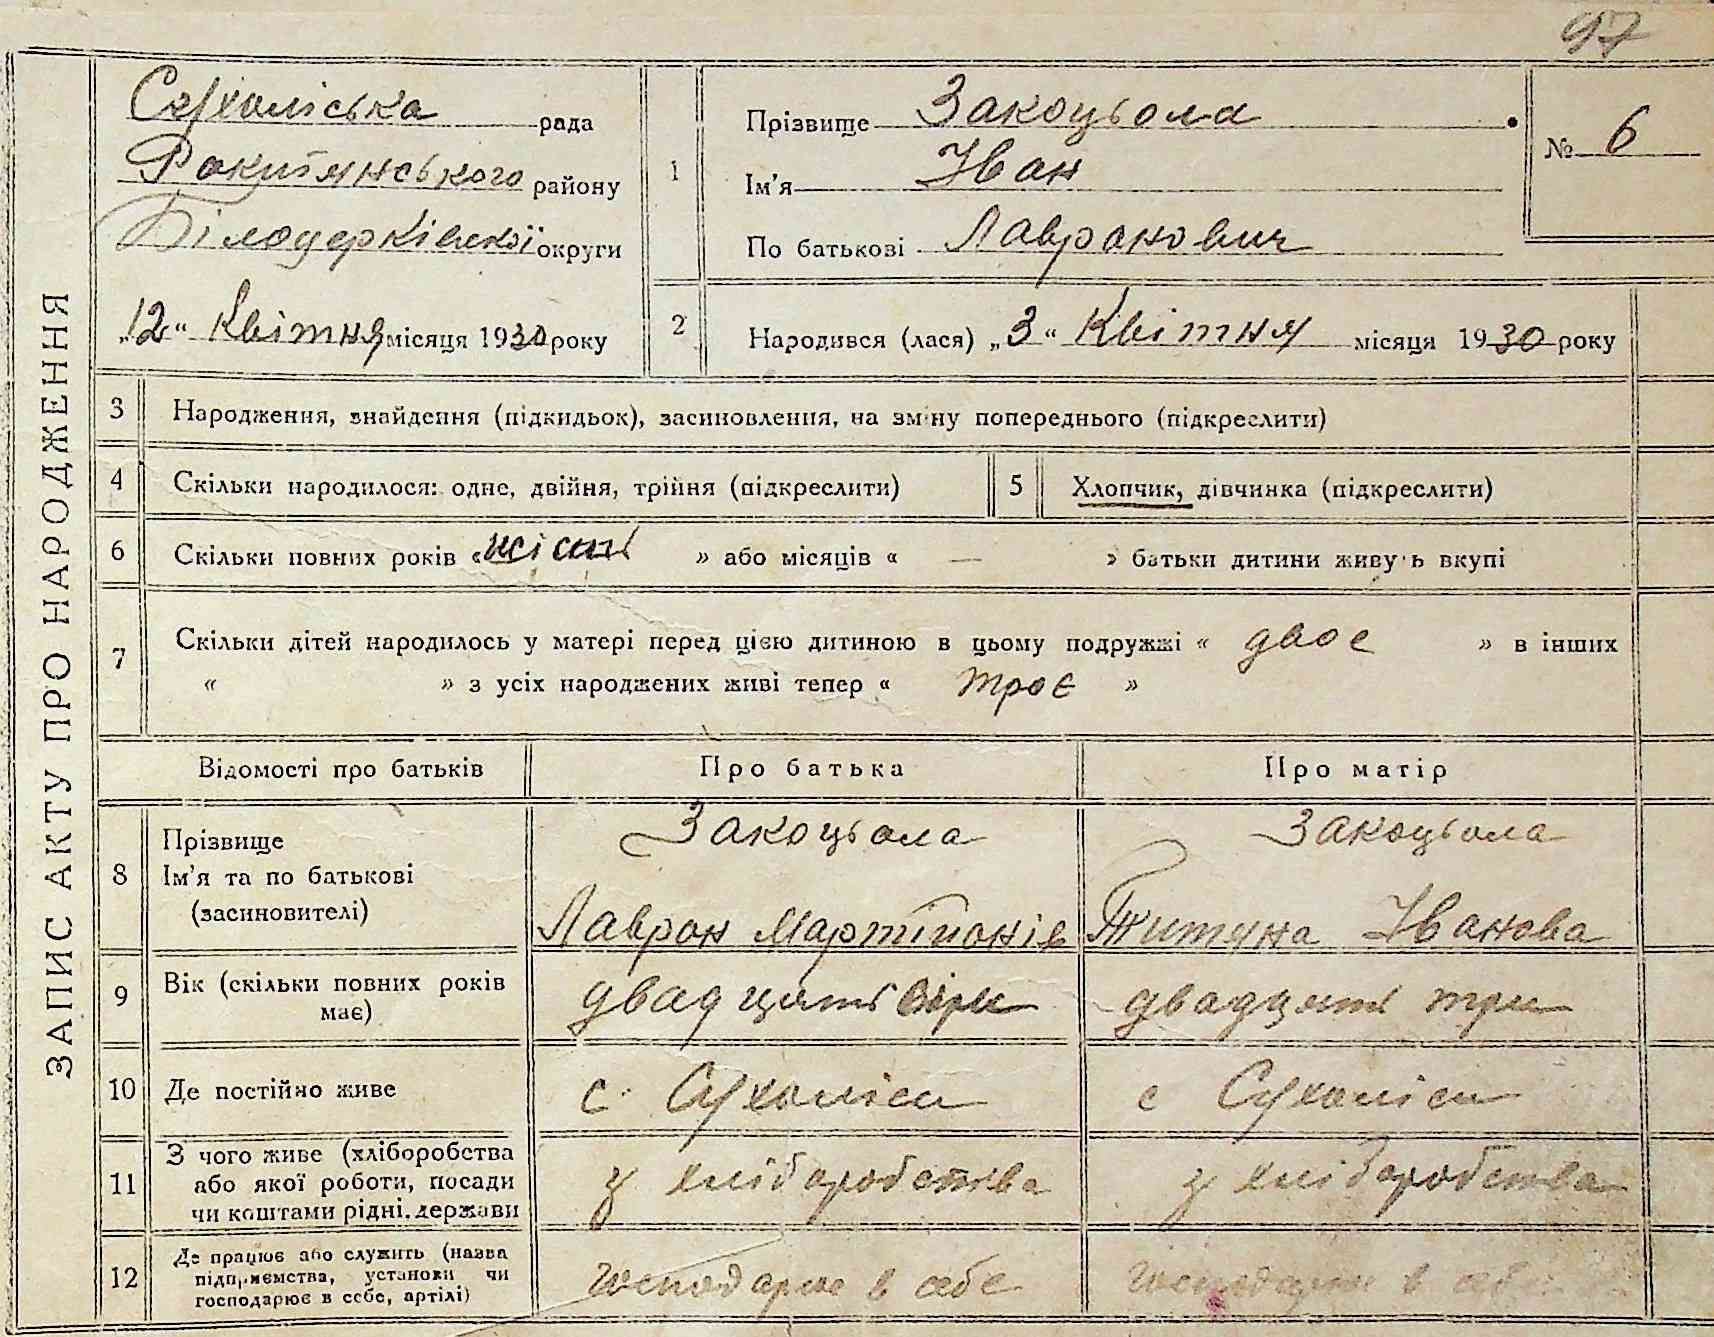 97
ЗАПИС АКТУ ПРО НАРОДЖЕННЯ
Сухоліська рада
Рокитянського району
Білоцерківської округи
„12“ Квітня місяця 1930 року
1
Прізвище Закоцьола
Ім'я Іван
По батькові Лавронович
№ 6
2
Народився (лася) „3“ Квітня місяця 1930 року
3 Народження, знайдення (підкидьок), засиновлення, на зміну попереднього (підкреслити)
4 Скільки народилося: одне, двійня, трійня (підкреслити)
5 Хлопчик, дівчинка (підкреслити)
6 Скільки повних років « шість » або місяців « — » батьки дитини живуть вкупі
7 Скільки дітей народилось у матері перед цією дитиною в цьому подружжі « двоє » в інших
« » з усіх народжених живі тепер « троє »
Відомості про батьків Про батька Про матір
8 Прізвище
Ім'я та по батькові
(засиновителі)
Закоцьола
Лаврон
Закоцьола
Іванова
9 Вік (скільки повних років
має)
двадцять
двадцять три
10 Де постійно живе
с. Сухоліси
с Сухоліси
11 З чого живе (хліборобства
або якої роботи, посади
чи коштами рідні, держави
з хліборобства
з хліборобства
12 Де працює або служить (назва
підприємства, установи чи
господарює в себе, артілі)
господарює в себе
господарює в себе